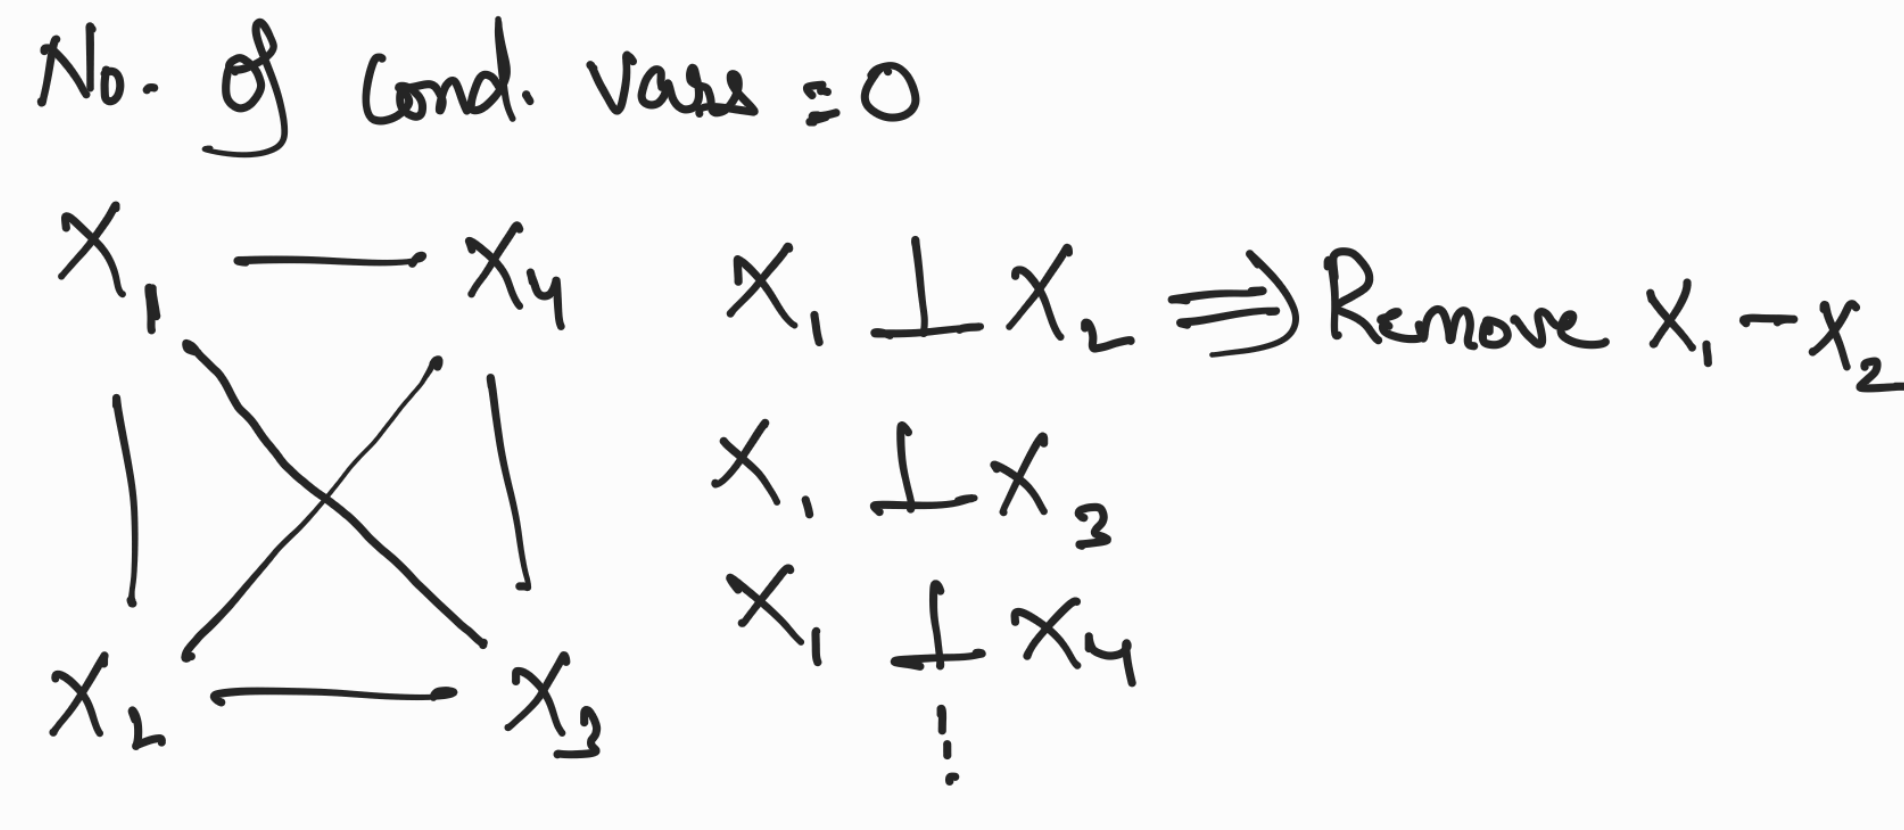 No. of Cond. vars = 0
X₁ X₄
X₂ X₃
X₁ ⊥ X₂ ⇒ Remove X₁ - X₂
X₁ ⊥ X₃
X₁ ⊥ X₄
⋮